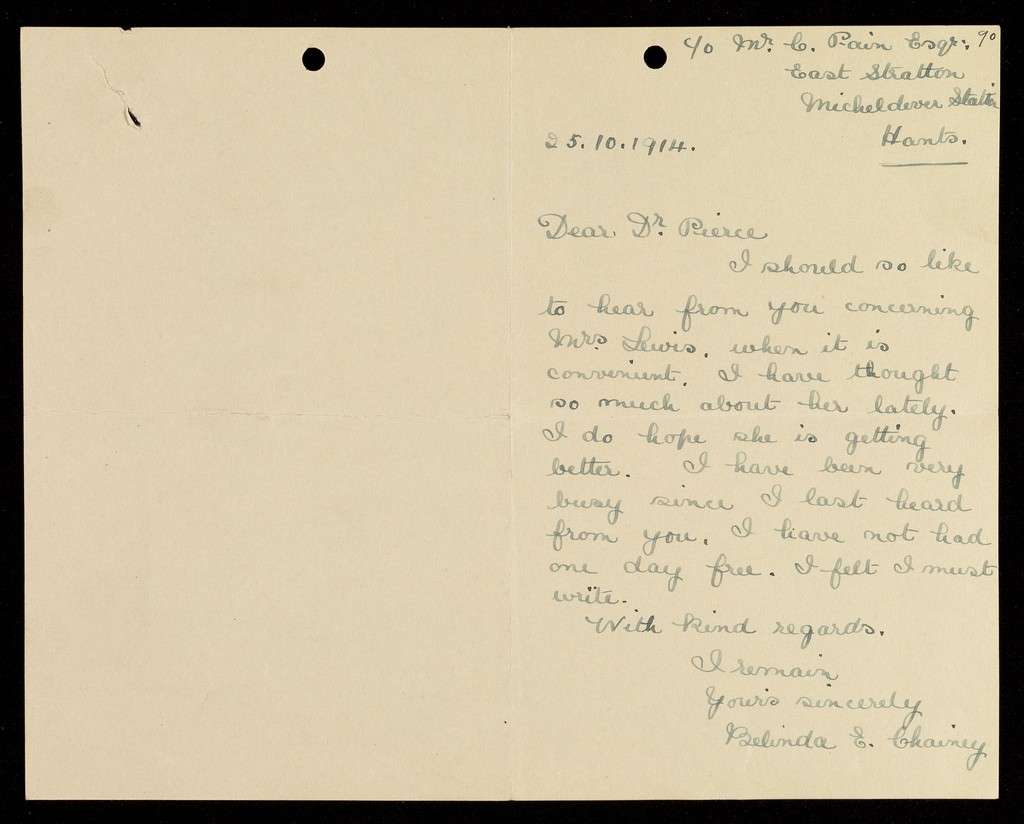 c/o Mr. C. Pain Esqr: 90
East Stratton
Micheldever Station
Hants.
25.10.1914.
Dear Dr. Pierce
I should so like
to hear from you concerning
Mrs. Lewis, when it is
convenient. I have thought
so much about her lately.
I do hope she is getting
better. I have been very
busy since I last heard
from you. I have not had
one day free. I felt I must
write.
With kind regards.
I remain
Yours sincerely
Belinda E. Chainey